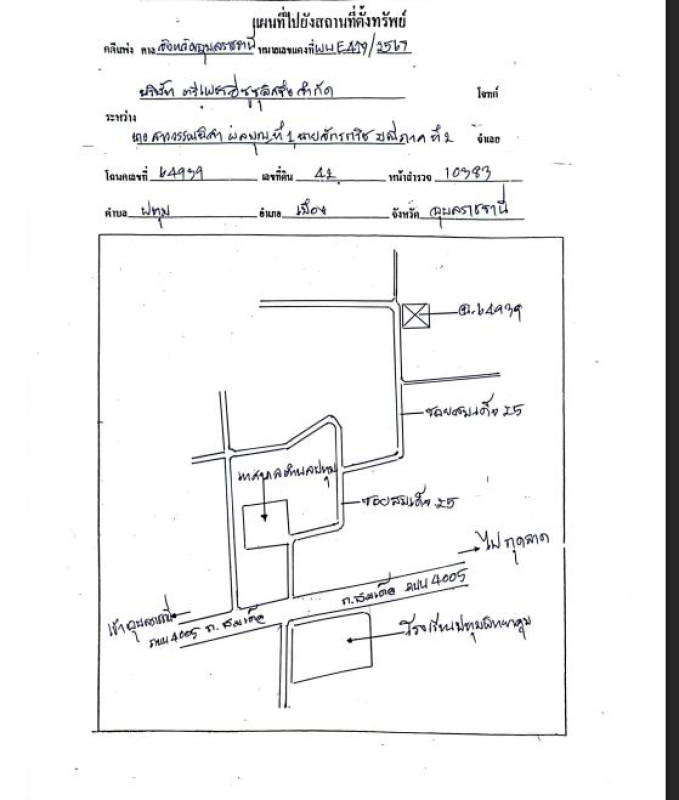 แผนที่ไปยังสถานที่ตั้งทรัพย์
คดีแพ่ง ศาล จังหวัดอุบลราชธานี หมายเลขแดงที่ ผบE419/2567
บริษัท ตรีเพชรอีซูซุลิสซิ่ง จำกัด โจทก์
ระหว่าง
ที่ 1 นาย ที่ 2 จำเลย
โฉนดเลขที่ 64939 เลขที่ดิน 42 หน้าสำรวจ 10383
ตำบล ปทุม อำเภอ เมือง จังหวัด อุบลราชธานี
ฉ.64939
ซอยสมเด็จ 25
เทศบาลตำบลปทุม
ซอยสมเด็จ 25
ไป กุดลาด
ถ.สมเด็จ ถนน 4005
เข้าอุบลธานี
ถนน 4005 ถ.สมเด็จ
โรงเรียนปทุมพิทยาคม